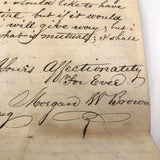 should like to have
but if it would
will give way; but i
what is mutual; I shall
Yours Affectionately
For Ever
Morgan W Brown